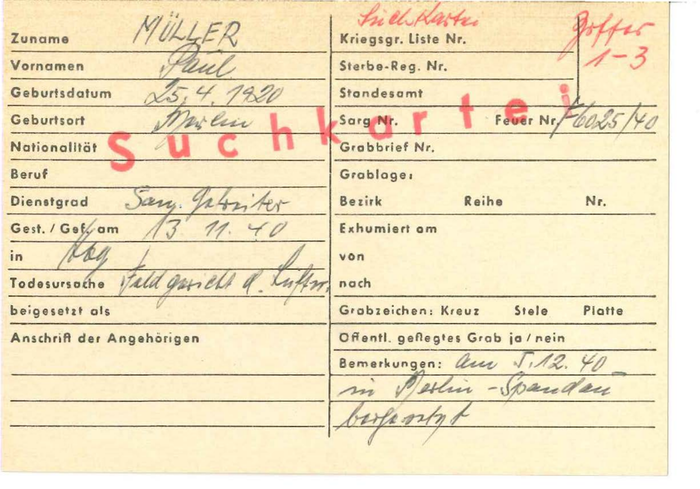 Zuname MÜLLER
Vornamen Paul
Geburtsdatum 25.4.1920
Geburtsort Berlin
Nationalität
Beruf
Dienstgrad San. Gefreiter
Gest./Gef. am 13 11. 40
in Hbg
Todesursache Feldgericht d. Luftw.
beigesetzt als
Anschrift der Angehörigen
Suchkartei
Suchkartei
1-3
Kriegsgr. Liste Nr.
Sterbe-Reg. Nr.
Standesamt
Sarg Nr. Feuer Nr. 76025/40
Grabbrief Nr.
Grablage:
Bezirk Reihe Nr.
Exhumiert am
von
nach
Grabzeichen: Kreuz Stele Platte
Öffentl. gepflegtes Grab ja/nein
Bemerkungen: am 5.12.40
in Berlin-Spandau
beigesetzt